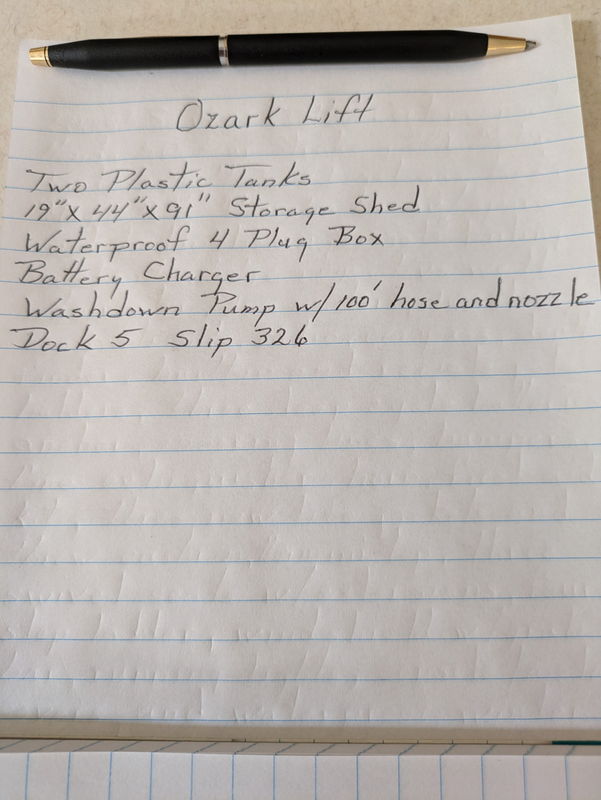 Ozark Lift
Two Plastic Tanks
19" x 44" x 91" Storage Shed
Waterproof 4 Plug Box
Battery Charger
Washdown Pump w/ 100' hose and nozzle
Dock 5 Slip 326